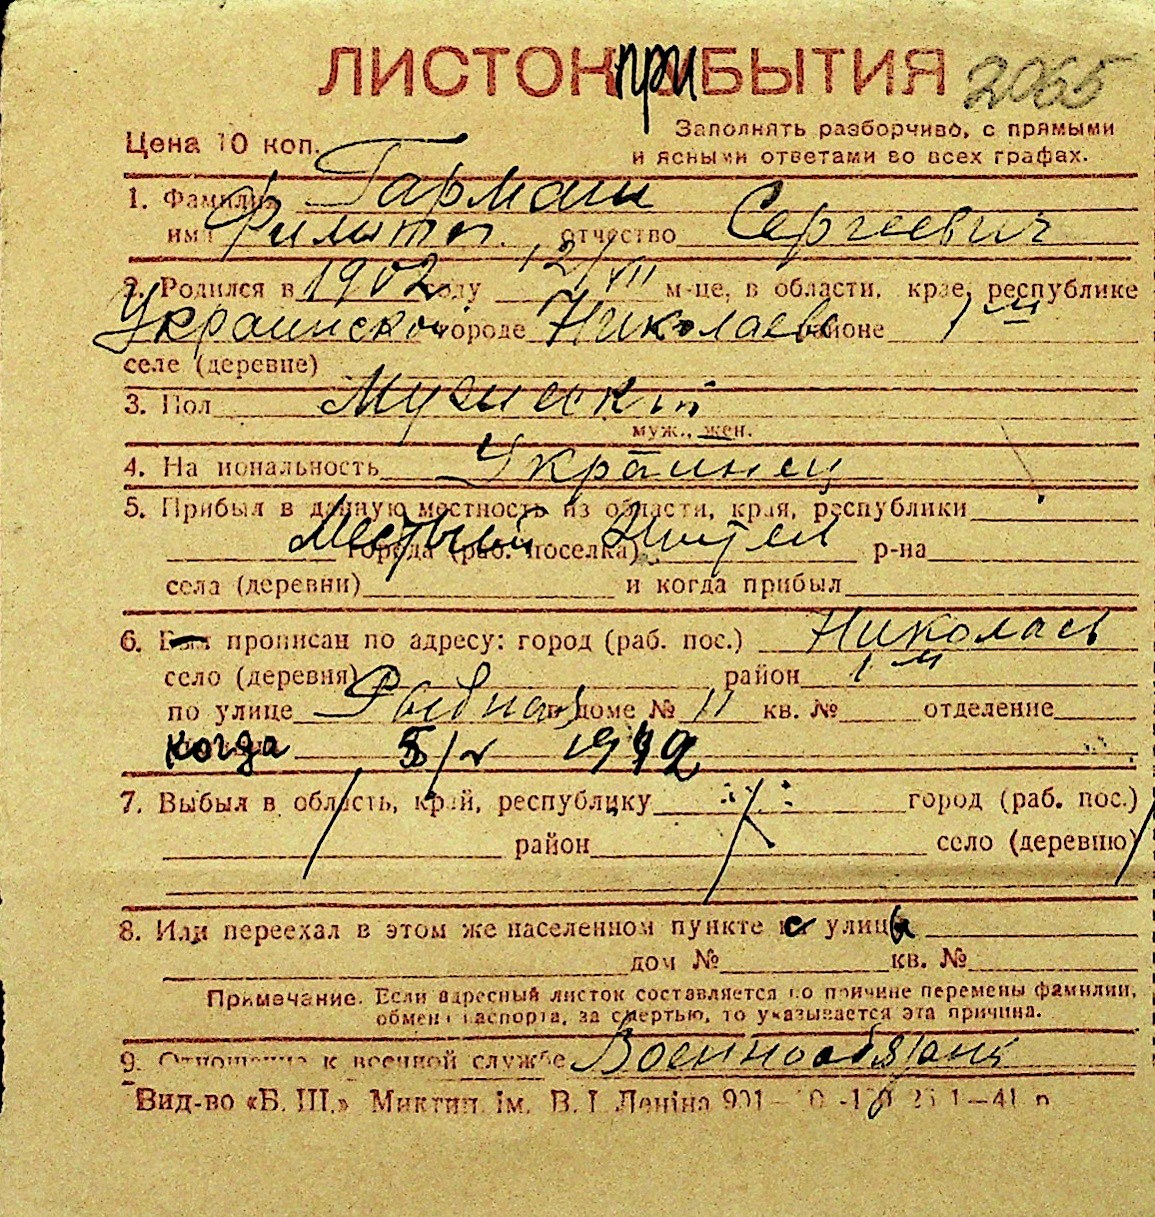 ЛИСТОК при БЫТИЯ 2065
Цена 10 коп.
Заполнять разборчиво, с прямыми
и ясными ответами во всех графах.
1. Фамилия Гармаш
имя Филипп отчество Сергеевич
2. Родился в 1902 году 12/VII м-це, в области, крае, республике
Украинской городе Николаев районе 1 м
селе (деревне)
3. Пол Мужской
муж., жен.
4. Национальность Украинец
5. Прибыл в данную местность из области, края, республики
Местный города (раб. поселка) Жител р-на
села (деревни) и когда прибыл
6. прописан по адресу: город (раб. пос.) Николаев
село (деревня) район 1 м
по улице Рыбная в доме № 11 кв. № отделение
когда 5/V 1942
7. Выбыл в область, край, республику город (раб. пос.)
район село (деревню)
8. Или переехал в этом же населенном пункте с улицы
дом № кв. №
Примечание. Если адресный листок составляется по причине перемены фамилии,
обмена паспорта, за смертью, то указывается эта причина.
9. Отношение к военной службе Военнообязан
Вид-во «Б. Ш.» Миктип. ім. В. І. Леніна 901